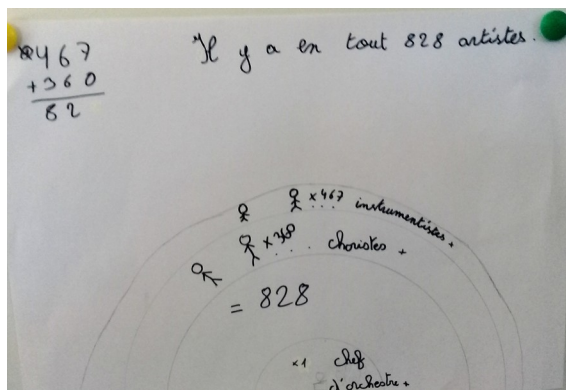 467
+360
82
Il y a en tout 828 artistes.
×467 instrumentistes +
choristes +
= 828
×1 chef
d'orchestre +